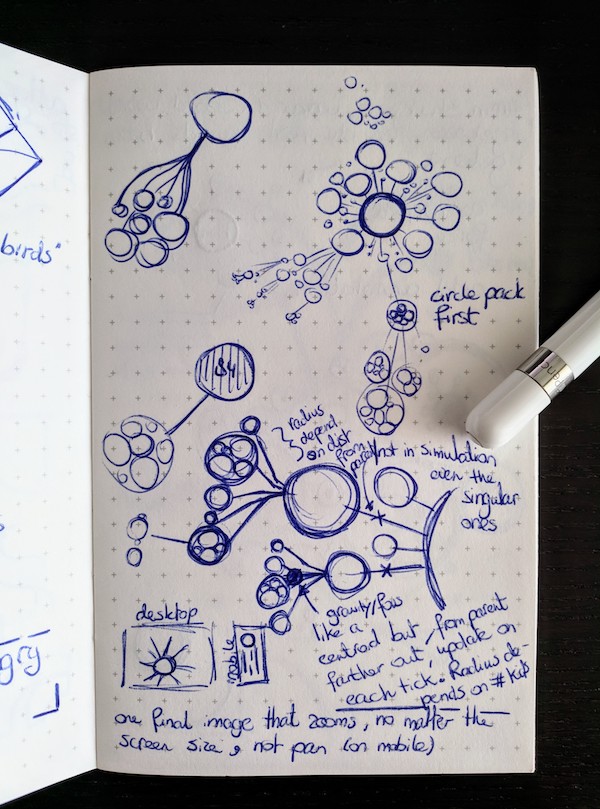 birds"
circle pack
first
84
radius
depend
on dist
from
parent
not in simulation
even the
singular
ones
gravity/pos
like a
centroid but, from parent
farther out, update on
each tick. Radius de-
pends on # kids
desktop
mobile
gry
one final image that zooms, no matter the
screen size, not pan (on mobile)